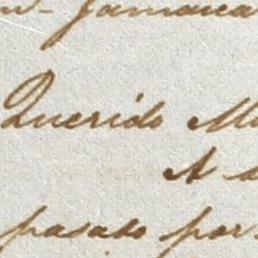 Jamaica
Querido
A
pasado por